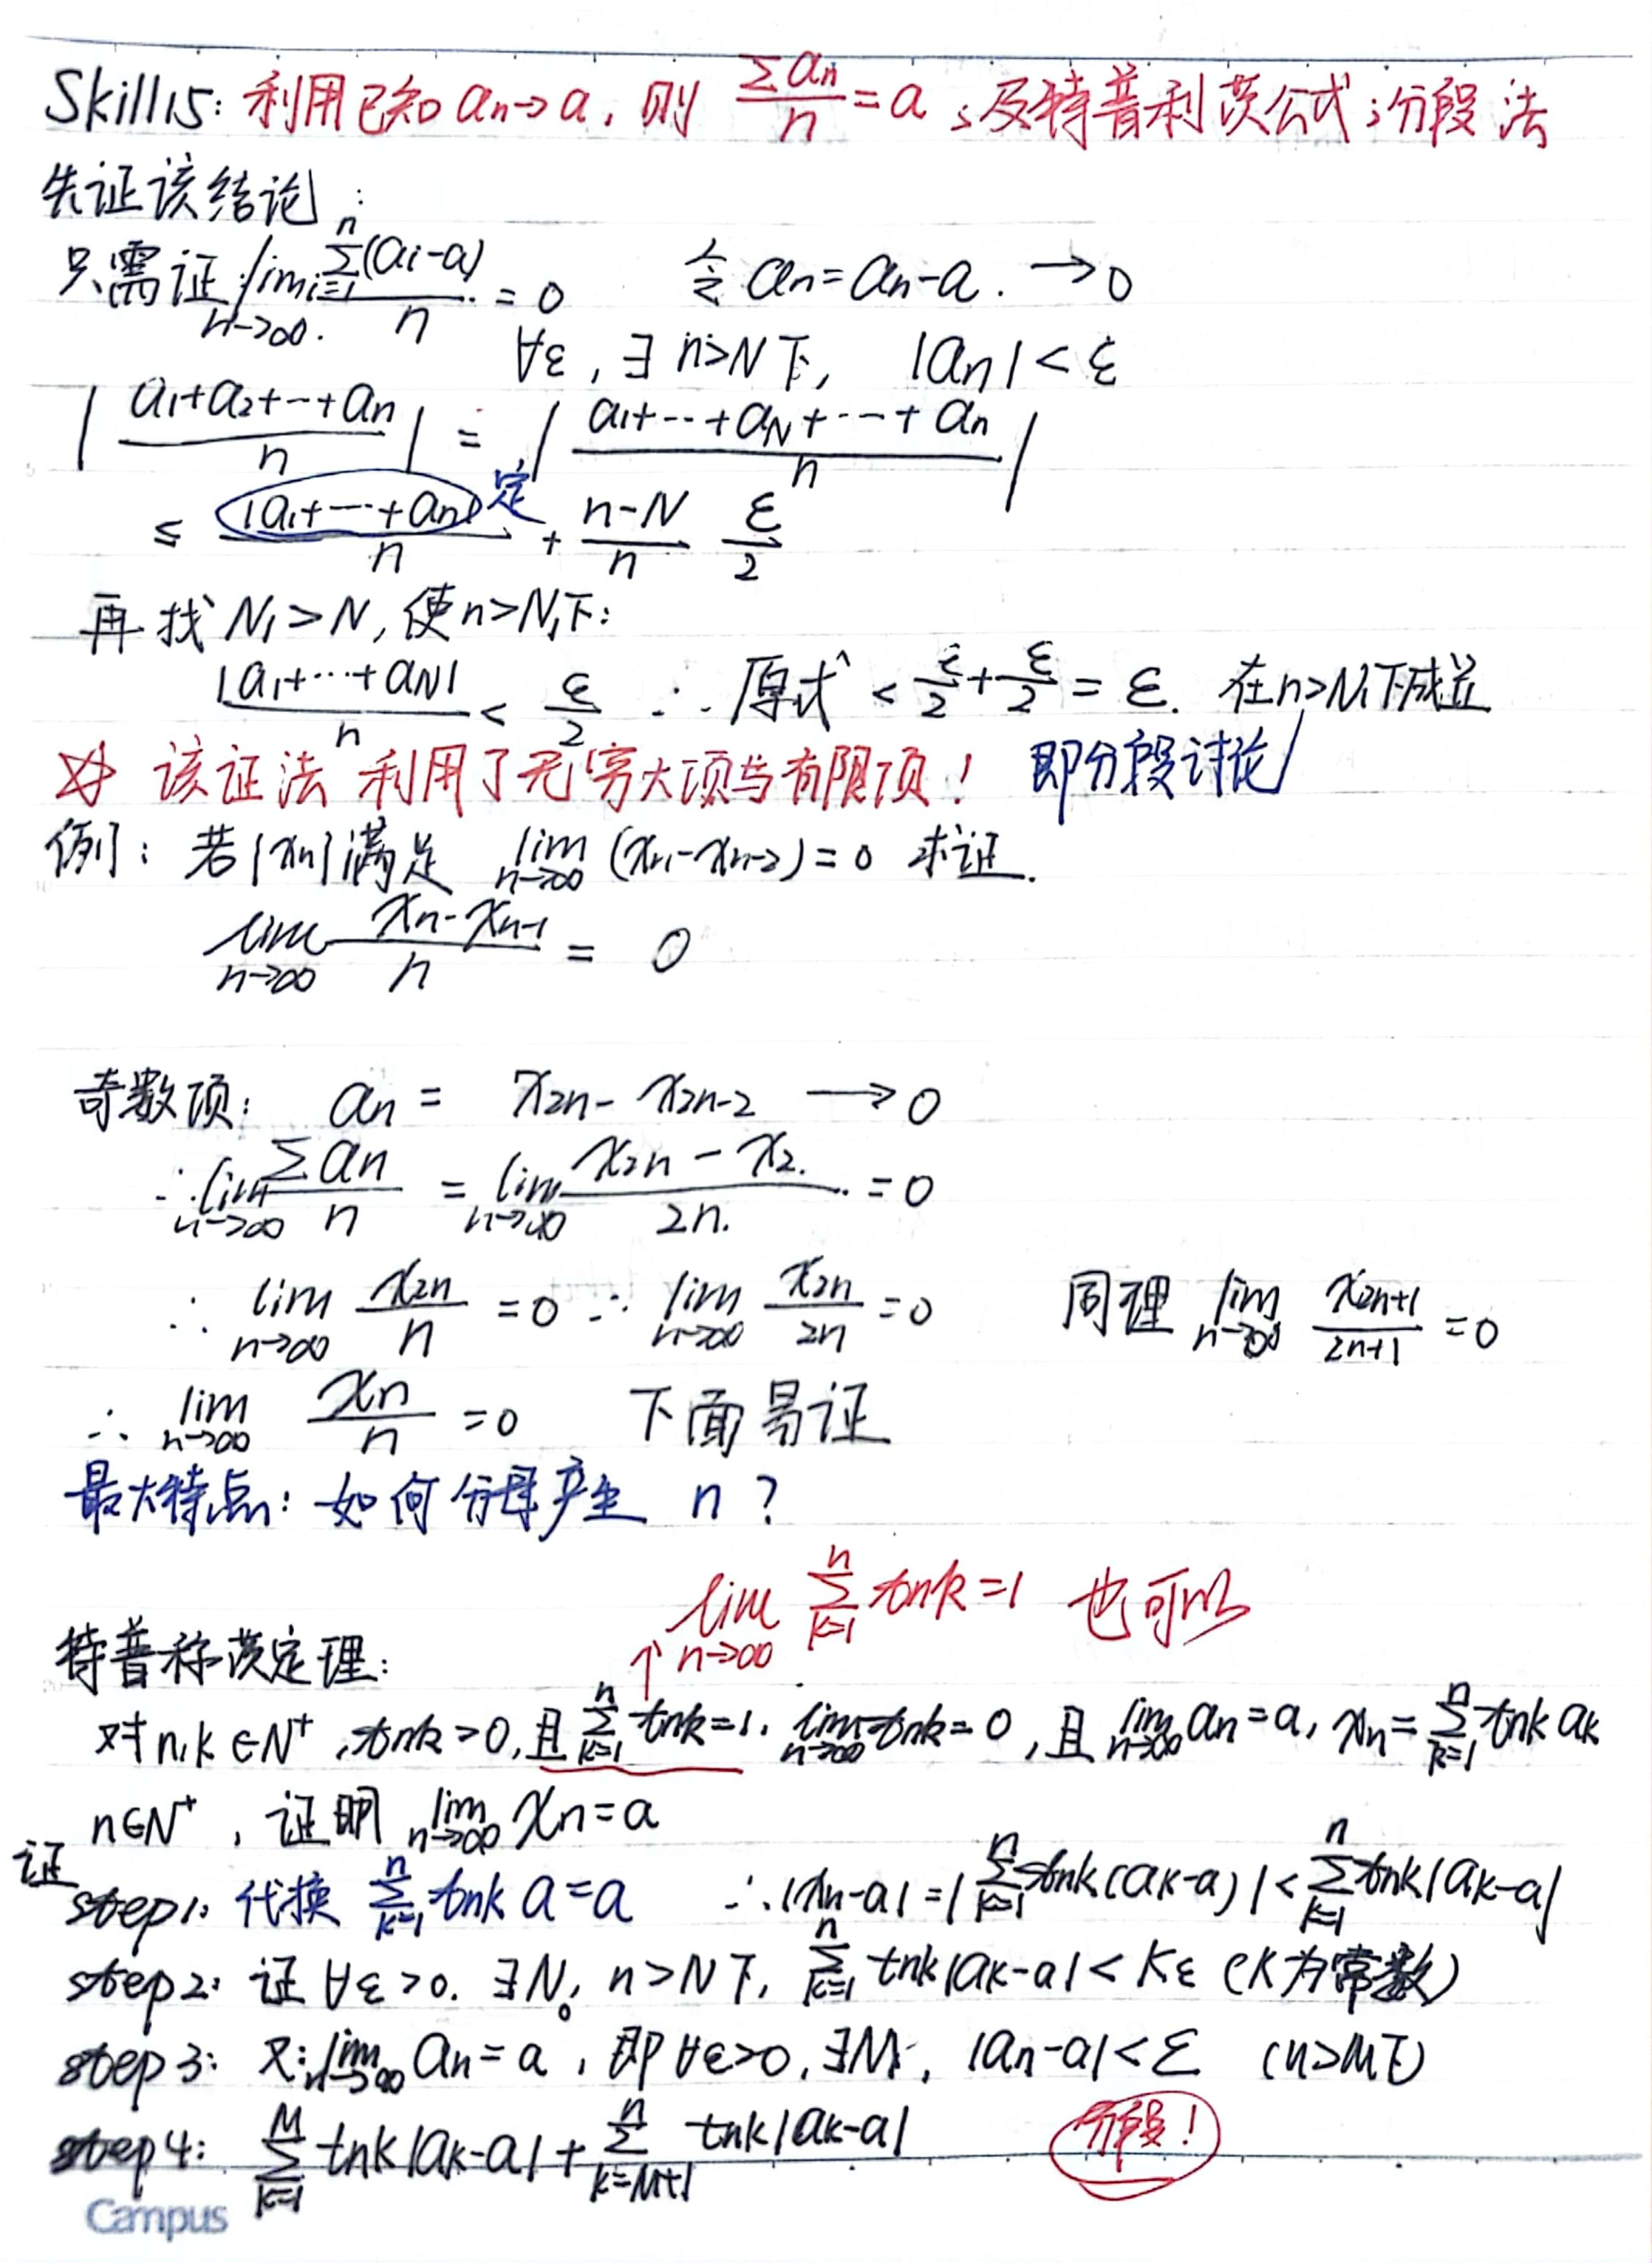 Skill15: 利用已知 an→a, 则 Σan/n = a ;及特普利茨公式;分段法
先证该结论:
只需证 lim n→∞ Σ i=1 n (ai-a) / n = 0 令 an=an-a. →0
∀ε, ∃ n>N下, |an|<ε
| (a1+a2+…+an)/n | = | (a1+…+aN+…+an)/n |
≤ |a1+…+an|/n 定 + (n-N)/n ε/2
再找 N1>N, 使n>N1下:
|a1+…+aN|/n < ε/2 ∴ 原式 < ε/2+ε/2 = ε. 在n>N1下成立
该证法利用了无穷大项与有限项! 即分段讨论
例: 若|xn|满足 lim n→∞ (xn-xn-2)=0 求证.
lim n→∞ (xn-xn-1)/n = 0
奇数项: an = x2n - x2n-2 → 0
∴ lim n→∞ Σan/n = lim n→∞ (x2n - x2)/2n. = 0
∴ lim n→∞ x2n/n = 0 ∴ lim n→∞ x2n/2n = 0 同理 lim n→∞ x2n+1/2n+1 = 0
∴ lim n→∞ xn/n = 0 下面易证
最大特点: 如何分母产生 n ?
↑ lim n→∞ Σ k=1 n tnk=1 也可以
特普称茨定理:
对n,k∈N⁺, tnk>0, 且 Σ k=1 n tnk=1. lim n→∞ tnk=0, 且 lim n→∞ an=a, xn=Σ k=1 n tnk ak
n∈N⁺, 证明 lim n→∞ xn=a
证
step1: 代换 Σ k=1 n tnk a=a ∴|xn-a|=|Σ k=1 n tnk(ak-a)|<Σ k=1 n tnk|ak-a|
step2: 证 ∀ε>0. ∃N0, n>N下, Σ k=1 n tnk|ak-a|<Kε (K为常数)
step3: 又∵ lim n→∞ an=a, 即∀ε>0, ∃M, |an-a|<Σ (n>M下)
step4: Σ k=1 M tnk|ak-a| + Σ k=M+1 n tnk|ak-a| 分段!
Campus